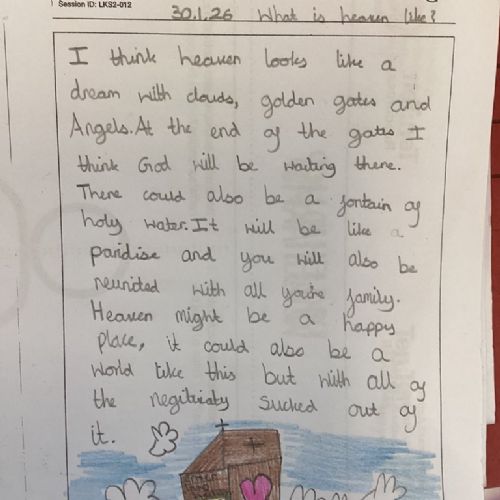 Session ID: LKS2-012
30.1.26 What is heaven like?
I think heaven looks like a
dream with clouds, golden gates and
Angels. At the end of the gates I
think God will be waiting there.
There could also be a fontain of
holy water. It will be like a
paridise and you will also be
reunited with all you're family.
Heaven might be a happy
place, it could also be a
world like this but with all of
the negitiviaty sucked out of
it.